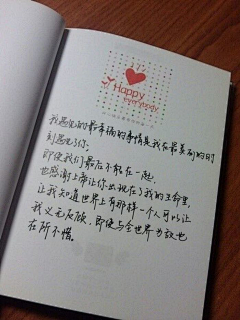 Happy
everyday
我遇见的最幸福的事情是我在最美的时
刻遇见了你.
即使我们最后不能在一起.
也感谢上帝让你出现在了我的生命里,
让我知道世界上有那样一个人可以让
我义无反顾.即使与全世界为敌也
在所不惜。